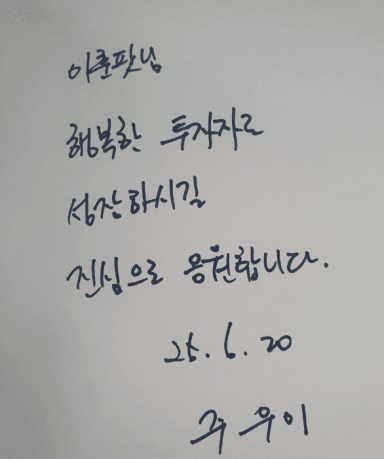 이룬팟님
행복한 투자자로
성장하시길
진심으로 응원합니다.
25. 6. 20
주우이